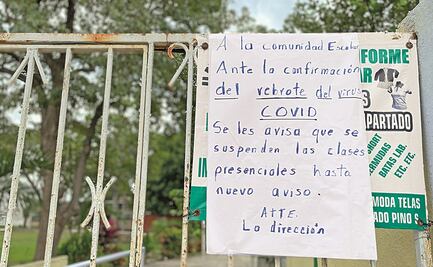 A la Comunidad Escolar
Ante la confirmación
del rebrote del virus
COVID
Se les avisa que se
suspenden las clases
presenciales hasta
nuevo aviso.
ATTE.
La dirección
IFORME
AR
S
PARTADO
SMORT
ERMUDAS
BATAS LAB.
ETC. ETC.
MODA TELAS
ADO PINO S